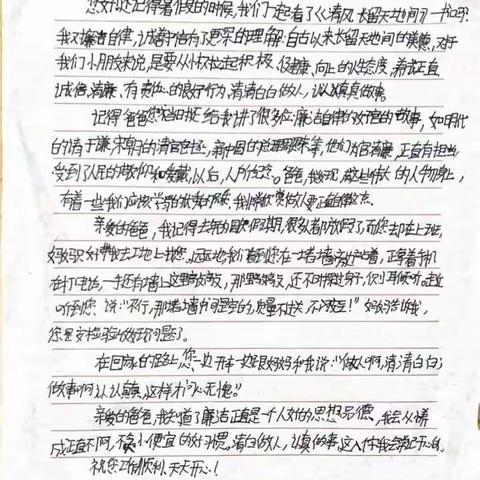 您好!还记得暑假的时候,我们一起看了《清风长留天地间》一书吗?
我对廉洁自律,诚善守信有了更深的理解:自古以来长留天地间的美德,对于
我们小朋友来说,是要从小树立起积极、健康、向上的人生态度,正直
诚信,清廉、有的良好行为,清清白白做人,认认真真做事。
记得爸爸您当时还给我讲了很多位廉洁自律的好官的故事,如明代
的清官于谦,宋朝的清官包拯,新中国的总理周恩来等,他们为官清廉,正直有担当
受到了人民的敬仰和爱戴,以后,人人传签。爸爸,我发现,这些伟大的人物身上,
有着一些我们应该学习的优秀的,我们做人要正直
亲爱的爸爸,我记得去年的国庆假期,很多人都放假了,而您却在上班,
妈妈带我去工地上找您。远远地我们看到您在一堵墙旁边,正拿着手机
在打电话,一手还在墙上这里敲敲,那里敲敲,还不时侧过身子,侧耳倾听,走近
听到您说:“不行,那堵墙是空的,质量不过关,不” 妈妈告诉我,
您是在检验的好坏呢。
在回家的路上,您一边开车一边跟妈妈和我说:“做人啊,清清白白;
做事啊,认认真真,这样才问心无愧。”
亲爱的爸爸,我知道了廉洁正直是一个人好的思想品德,我会从小养
成正直不阿,不贪小便宜的好习惯。清白做人,认真做事,这八个字我会牢记于心。
祝您工作顺利,天天开心!